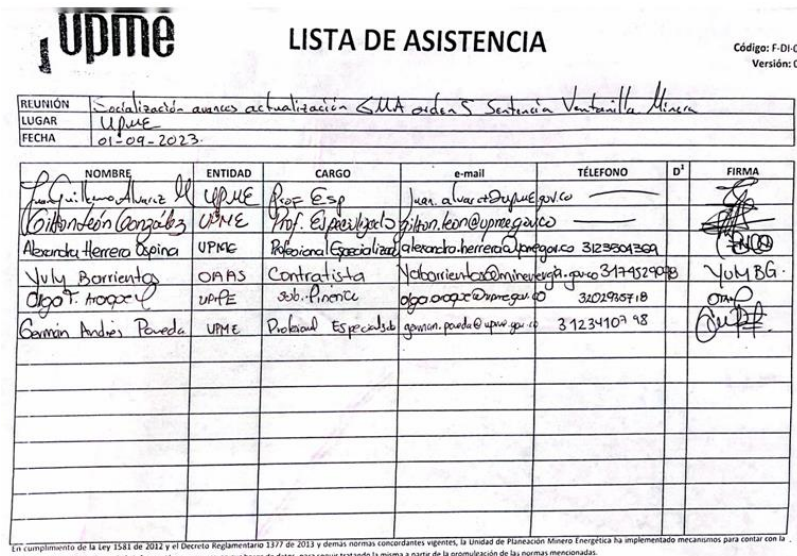 upme
LISTA DE ASISTENCIA
Código: F-DI-
Versión:
REUNIÓN Socialización avances actualización SMA orden 5 Sentencia Ventanilla Minera
LUGAR UPME
FECHA 01-09-2023.
NOMBRE ENTIDAD CARGO e-mail TÉLEFONO D¹ FIRMA
Juan Guillermo Alvarez UPME Prof Esp juan.alvarez@upme.gov.co
Gilton León González UPME Prof. Especializado gilton.leon@upme.gov.co
Alexandra Herrera Ospina UPME Profesional Especializad alexandra.herrera@upme.gov.co
Yuly Barrientos OAAS Contratista Ysbarrientos@minenergia.gov.co Yuly BG.
Olga T. UPME Sub. Minería 3202935718
Germán Andrés Poveda UPME Profesional Especializado german.poveda@upme.gov.co 3123410798
En cumplimiento de la Ley 1581 de 2012 y el Decreto Reglamentario 1377 de 2013 y demás normas concordantes vigentes, la Unidad de Planeación Minero Energética ha implementado mecanismos para contar con la
datos, para seguir tratando la misma a partir de la promulgación de las normas mencionadas.